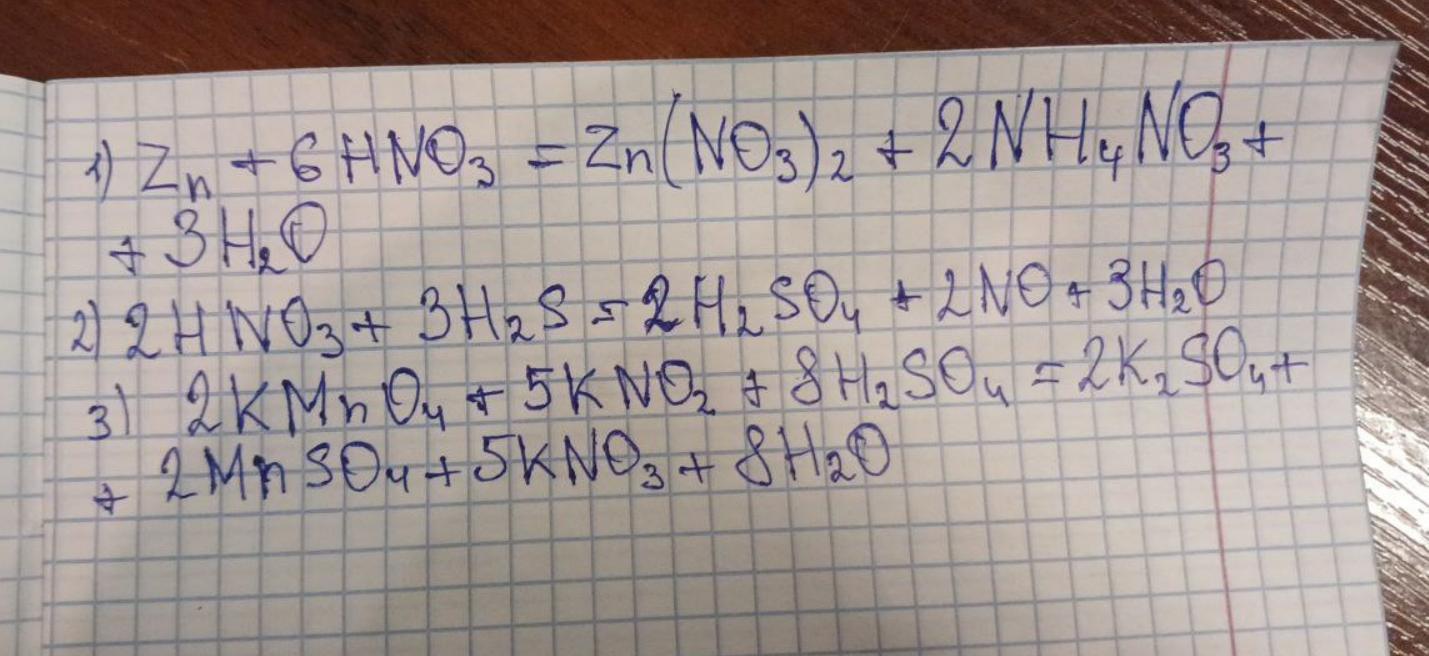 1) Zn + 6HNO₃ = Zn(NO₃)₂ + 2NH₄NO₃ +
+ 3H₂O
2) 2HNO₃ + 3H₂S = 2H₂SO₄ + 2NO + 3H₂O
3) 2KMnO₄ + 5KNO₂ + 8H₂SO₄ = 2K₂SO₄ +
+ 2MnSO₄ + 5KNO₃ + 8H₂O